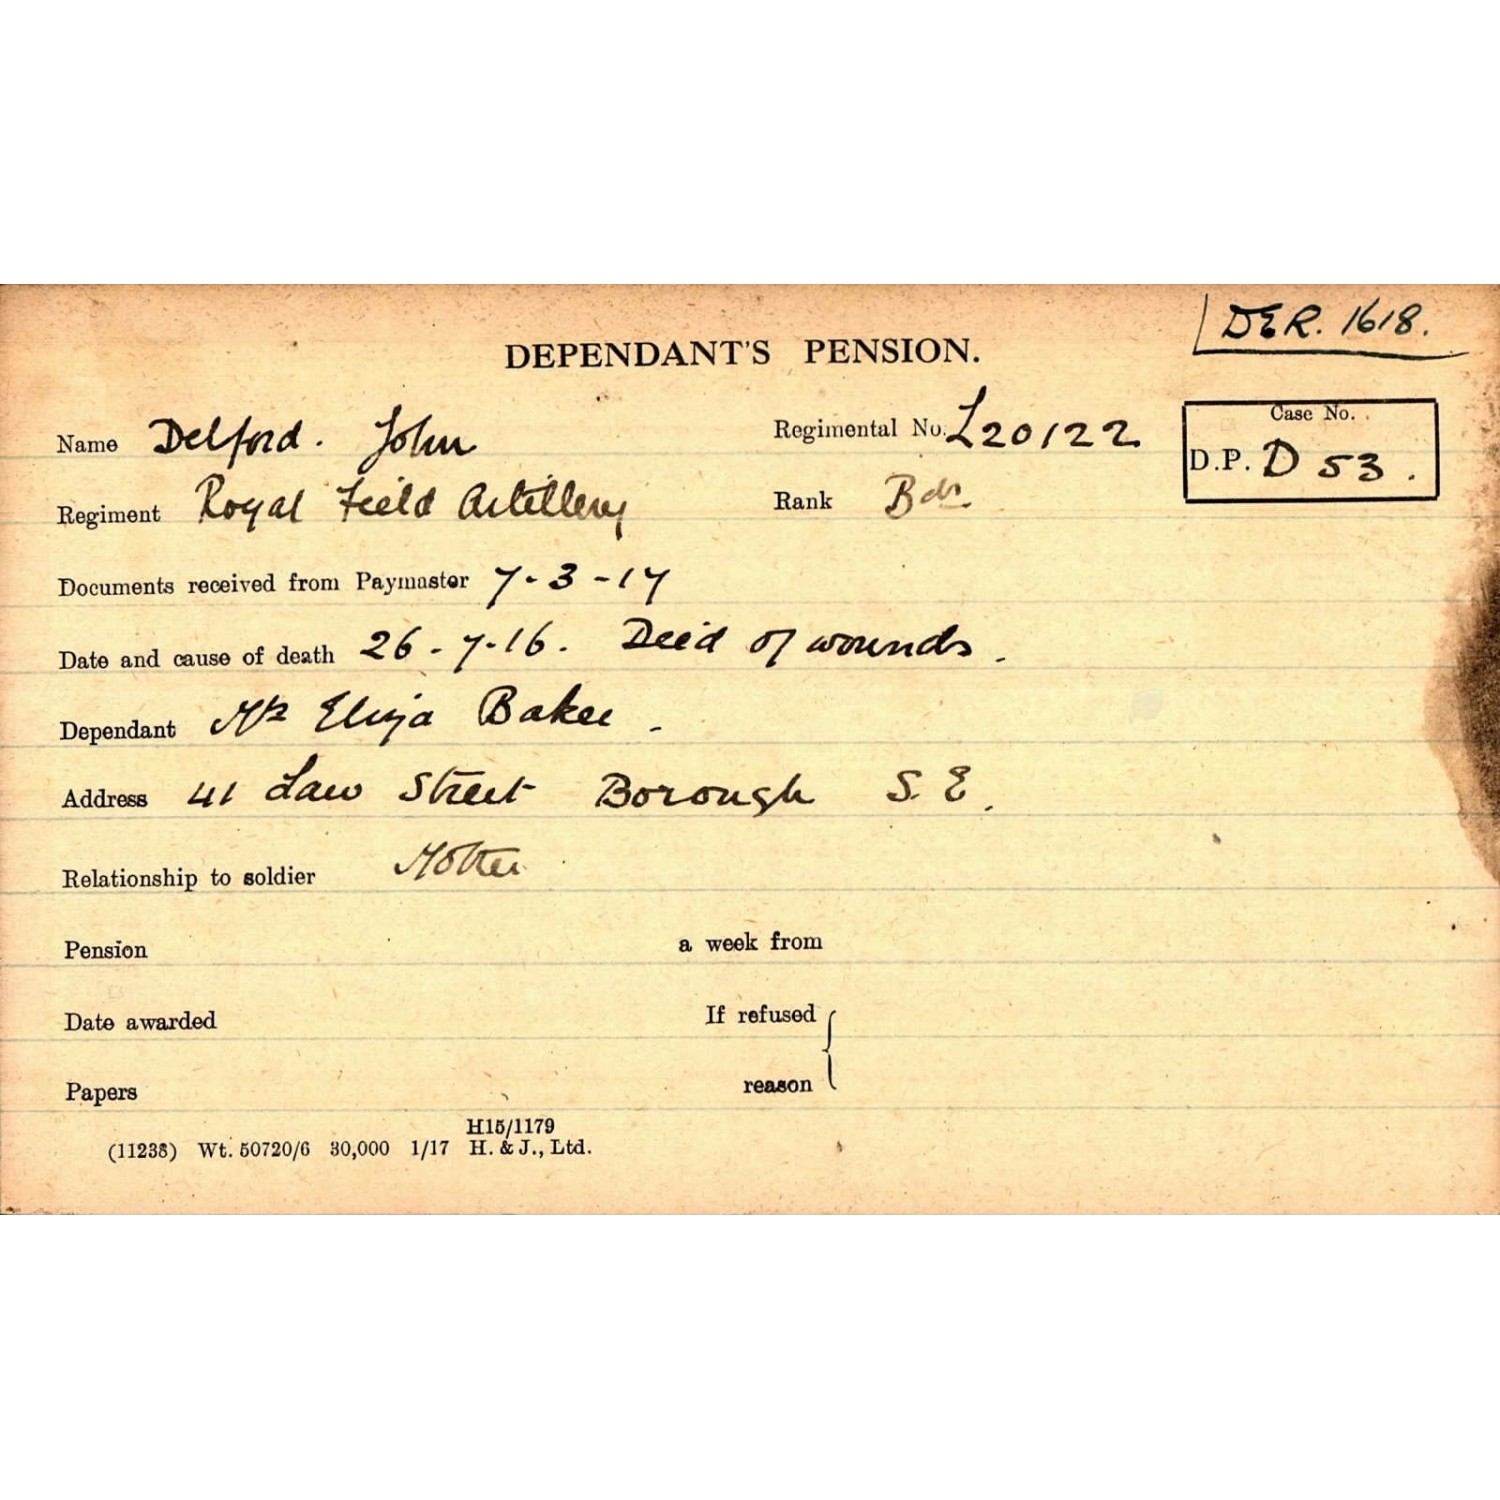 DER. 1618.
DEPENDANT'S PENSION.
Name Delford. John Regimental No. L20122 Case No.
D.P. D 53.
Regiment Royal Field Artillery Rank Bdr
Documents received from Paymaster 7-3-17
Date and cause of death 26-7-16. Deid of wounds.
Dependant Mrs Eliza Baker.
Address 41 Law Street Borough S.E.
Relationship to soldier Mother
Pension a week from
Date awarded If refused
Papers reason
H15/1179
(11238) Wt. 50720/6 30,000 1/17 H. & J., Ltd.